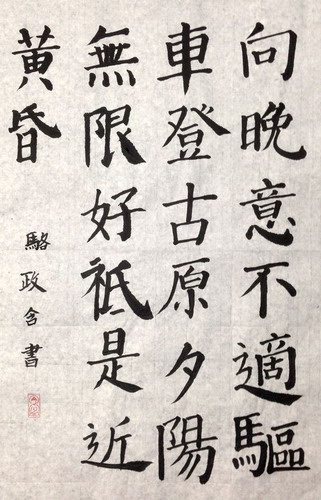 向晚意不適驅
車登古原夕陽
無限好祗是近
黃昏
駱政含書